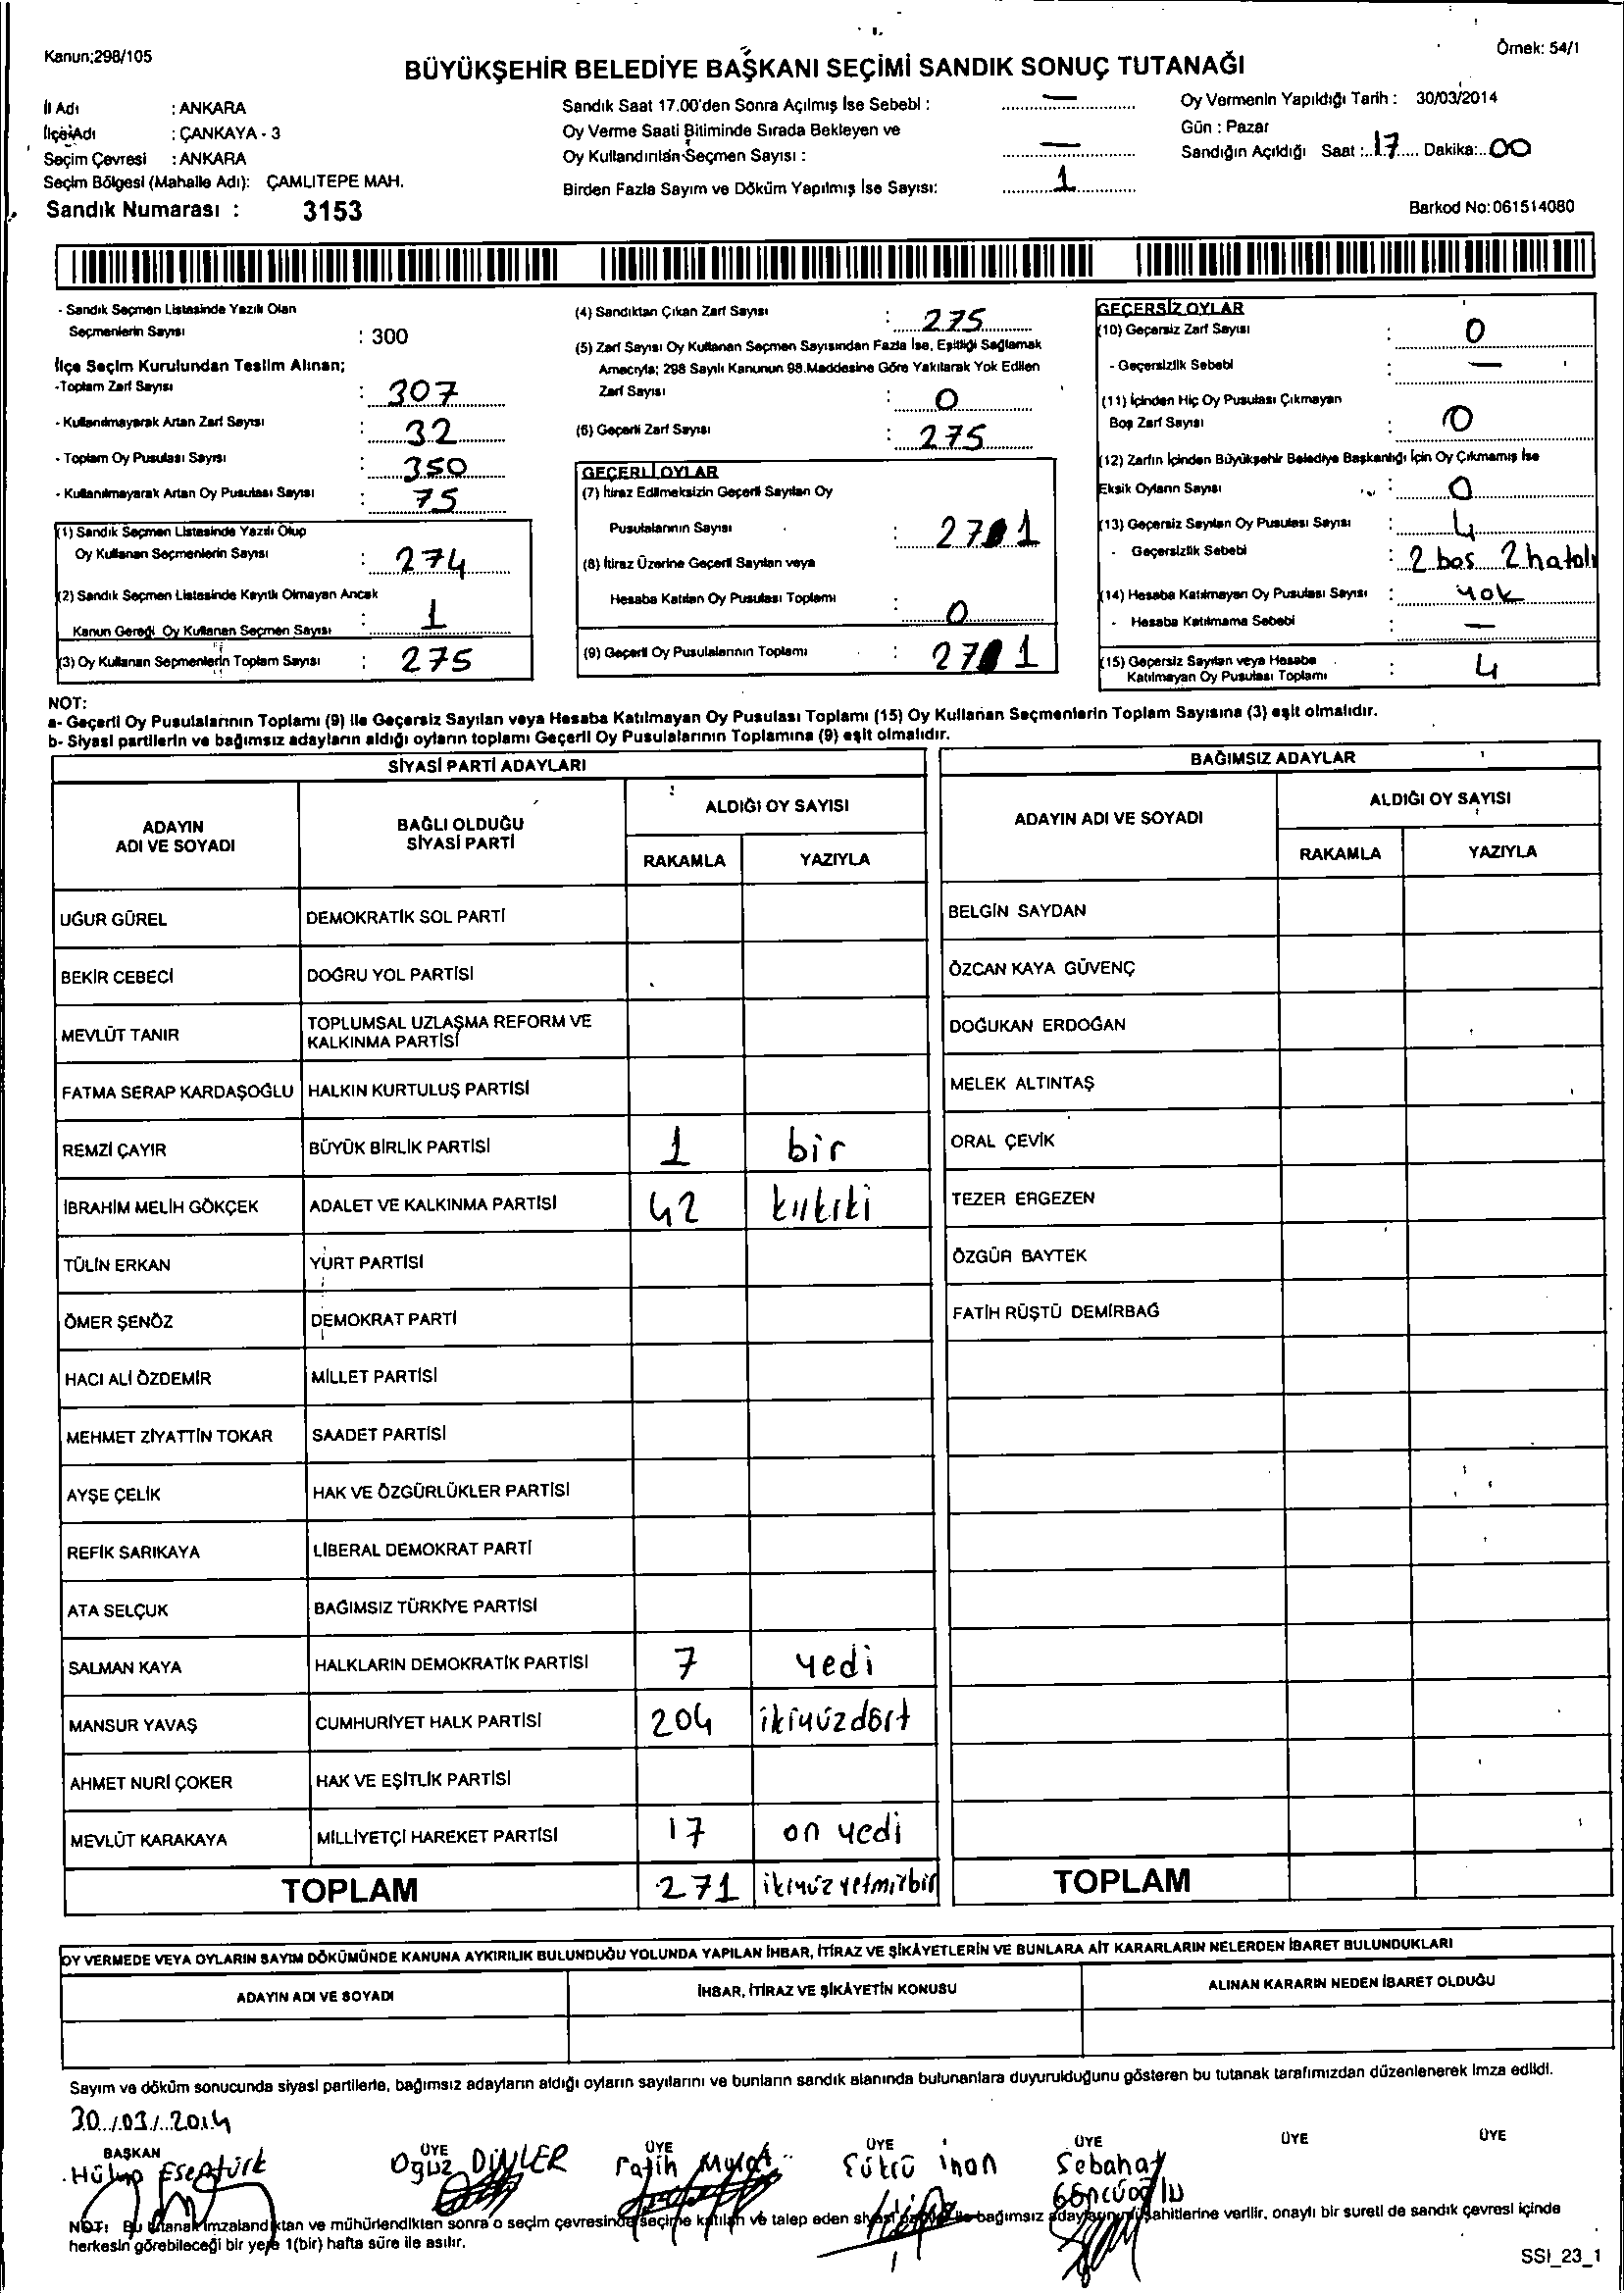 Kanun;298/105
Örnek: 54/1
BÜYÜKŞEHİR BELEDİYE BAŞKANI SEÇİMİ SANDIK SONUÇ TUTANAĞI
İl Adı : ANKARA
İlçe Adı : ÇANKAYA - 3
Seçim Çevresi : ANKARA
Seçim Bölgesi (Mahalle Adı): ÇAMLITEPE MAH.
Sandık Numarası : 3153
Sandık Saat 17.00'den Sonra Açılmış İse Sebebi : —
Oy Verme Saati Bitiminde Sırada Bekleyen ve
Oy Kullandırılan Seçmen Sayısı : —
Birden Fazla Sayım ve Döküm Yapılmış İse Sayısı: 1
Oy Vermenin Yapıldığı Tarih : 30/03/2014
Gün : Pazar
Sandığın Açıldığı Saat : 17 Dakika: 00
Barkod No:061514080
- Sandık Seçmen Listesinde Yazılı Olan
Seçmenlerin Sayısı : 300
İlçe Seçim Kurulundan Teslim Alınan;
-Toplam Zarf Sayısı : 307
- Kullanılmayarak Artan Zarf Sayısı : 32
- Toplam Oy Pusulası Sayısı : 350
- Kullanılmayarak Artan Oy Pusulası Sayısı : 75
(1) Sandık Seçmen Listesinde Yazılı Olup
Oy Kullanan Seçmenlerin Sayısı : 274
(2) Sandık Seçmen Listesinde Kayıtlı Olmayan Ancak
Kanun Gereği Oy Kullanan Seçmen Sayısı : 1
(3) Oy Kullanan Seçmenlerin Toplam Sayısı : 275
(4) Sandıktan Çıkan Zarf Sayısı : 275
(5) Zarf Sayısı Oy Kullanan Seçmen Sayısından Fazla İse, Eşitliği Sağlamak
Amacıyla; 298 Sayılı Kanunun 98.Maddesine Göre Yakılarak Yok Edilen
Zarf Sayısı : 0
(6) Geçerli Zarf Sayısı : 275
GEÇERLİ OYLAR
(7) İtiraz Edilmeksizin Geçerli Sayılan Oy
Pusulalarının Sayısı : 271
(8) İtiraz Üzerine Geçerli Sayılan veya
Hesaba Katılan Oy Pusulası Toplamı : 0
(9) Geçerli Oy Pusulalarının Toplamı : 271
GEÇERSİZ OYLAR
(10) Geçersiz Zarf Sayısı : 0
- Geçersizlik Sebebi : —
(11) İçinden Hiç Oy Pusulası Çıkmayan
Boş Zarf Sayısı : 0
(12) Zarfın İçinden Büyükşehir Belediye Başkanlığı İçin Oy Çıkmamış İse
Eksik Oyların Sayısı : 0
(13) Geçersiz Sayılan Oy Pusulası Sayısı : 4
- Geçersizlik Sebebi : 2 bos 2 hatalı
(14) Hesaba Katılmayan Oy Pusulası Sayısı : yok
- Hesaba Katılmama Sebebi : —
(15) Geçersiz Sayılan veya Hesaba
Katılmayan Oy Pusulası Toplamı : 4
NOT:
a- Geçerli Oy Pusulalarının Toplamı (9) ile Geçersiz Sayılan veya Hesaba Katılmayan Oy Pusulası Toplamı (15) Oy Kullanan Seçmenlerin Toplam Sayısına (3) eşit olmalıdır.
b- Siyasi partilerin ve bağımsız adayların aldığı oyların toplamı Geçerli Oy Pusulalarının Toplamına (9) eşit olmalıdır.
SİYASİ PARTİ ADAYLARI
BAĞIMSIZ ADAYLAR
ADAYIN
ADI VE SOYADI
BAĞLI OLDUĞU
SİYASİ PARTİ
ALDIĞI OY SAYISI
RAKAMLA YAZIYLA
ADAYIN ADI VE SOYADI
ALDIĞI OY SAYISI
RAKAMLA YAZIYLA
UĞUR GÜREL DEMOKRATİK SOL PARTİ BELGİN SAYDAN
BEKİR CEBECİ DOĞRU YOL PARTİSİ ÖZCAN KAYA GÜVENÇ
MEVLÜT TANIR TOPLUMSAL UZLAŞMA REFORM VE
KALKINMA PARTİSİ DOĞUKAN ERDOĞAN
FATMA SERAP KARDAŞOĞLU HALKIN KURTULUŞ PARTİSİ MELEK ALTINTAŞ
REMZİ ÇAYIR BÜYÜK BİRLİK PARTİSİ 1 bir ORAL ÇEVİK
İBRAHİM MELİH GÖKÇEK ADALET VE KALKINMA PARTİSİ 42 TEZER ERGEZEN
TÜLİN ERKAN YURT PARTİSİ ÖZGÜR BAYTEK
ÖMER ŞENÖZ DEMOKRAT PARTİ FATİH RÜŞTÜ DEMİRBAĞ
HACI ALİ ÖZDEMİR MİLLET PARTİSİ
MEHMET ZİYATTİN TOKAR SAADET PARTİSİ
AYŞE ÇELİK HAK VE ÖZGÜRLÜKLER PARTİSİ
REFİK SARIKAYA LİBERAL DEMOKRAT PARTİ
ATA SELÇUK BAĞIMSIZ TÜRKİYE PARTİSİ
SALMAN KAYA HALKLARIN DEMOKRATİK PARTİSİ 7 yedi
MANSUR YAVAŞ CUMHURİYET HALK PARTİSİ 204 ikiyüzdört
AHMET NURİ ÇOKER HAK VE EŞİTLİK PARTİSİ
MEVLÜT KARAKAYA MİLLİYETÇİ HAREKET PARTİSİ 17 on yedi
TOPLAM 271 ikiyüzyetmişbir TOPLAM
OY VERMEDE VEYA OYLARIN SAYIM DÖKÜMÜNDE KANUNA AYKIRILIK BULUNDUĞU YOLUNDA YAPILAN İHBAR, İTİRAZ VE ŞİKÂYETLERİN VE BUNLARA AİT KARARLARIN NELERDEN İBARET BULUNDUKLARI
ADAYIN ADI VE SOYADI İHBAR, İTİRAZ VE ŞİKÂYETİN KONUSU ALINAN KARARIN NEDEN İBARET OLDUĞU
Sayım ve döküm sonucunda siyasi partilerle, bağımsız adayların aldığı oyların sayılarını ve bunların sandık alanında bulunanlara duyurulduğunu gösteren bu tutanak tarafımızdan düzenlenerek imza edildi.
30/03/2014
BAŞKAN ÜYE ÜYE ÜYE ÜYE ÜYE ÜYE
Hülya Esentürk Oğuz DİNLER Fatih Murat Şükrü inan Sebahat
Göncüoğlu
NOT: Bu tutanak imzalandıktan ve mühürlendikten sonra o seçim çevresinde seçime katılan ve talep eden siyasi parti ile bağımsız adayların müşahitlerine verilir, onaylı bir sureti de sandık çevresi içinde
herkesin görebileceği bir yere 1(bir) hafta süre ile asılır.
SSI_23_1